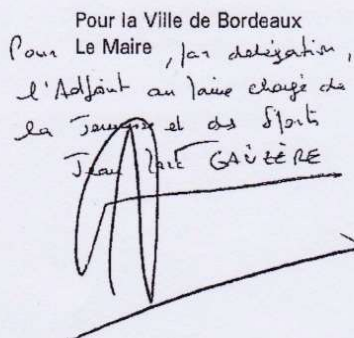 Pour la Ville de Bordeaux
Pour Le Maire, par délégation,
l'Adjoint au Maire chargé de
la Jeunesse et des Sports
Jean Marc GAUZÈRE